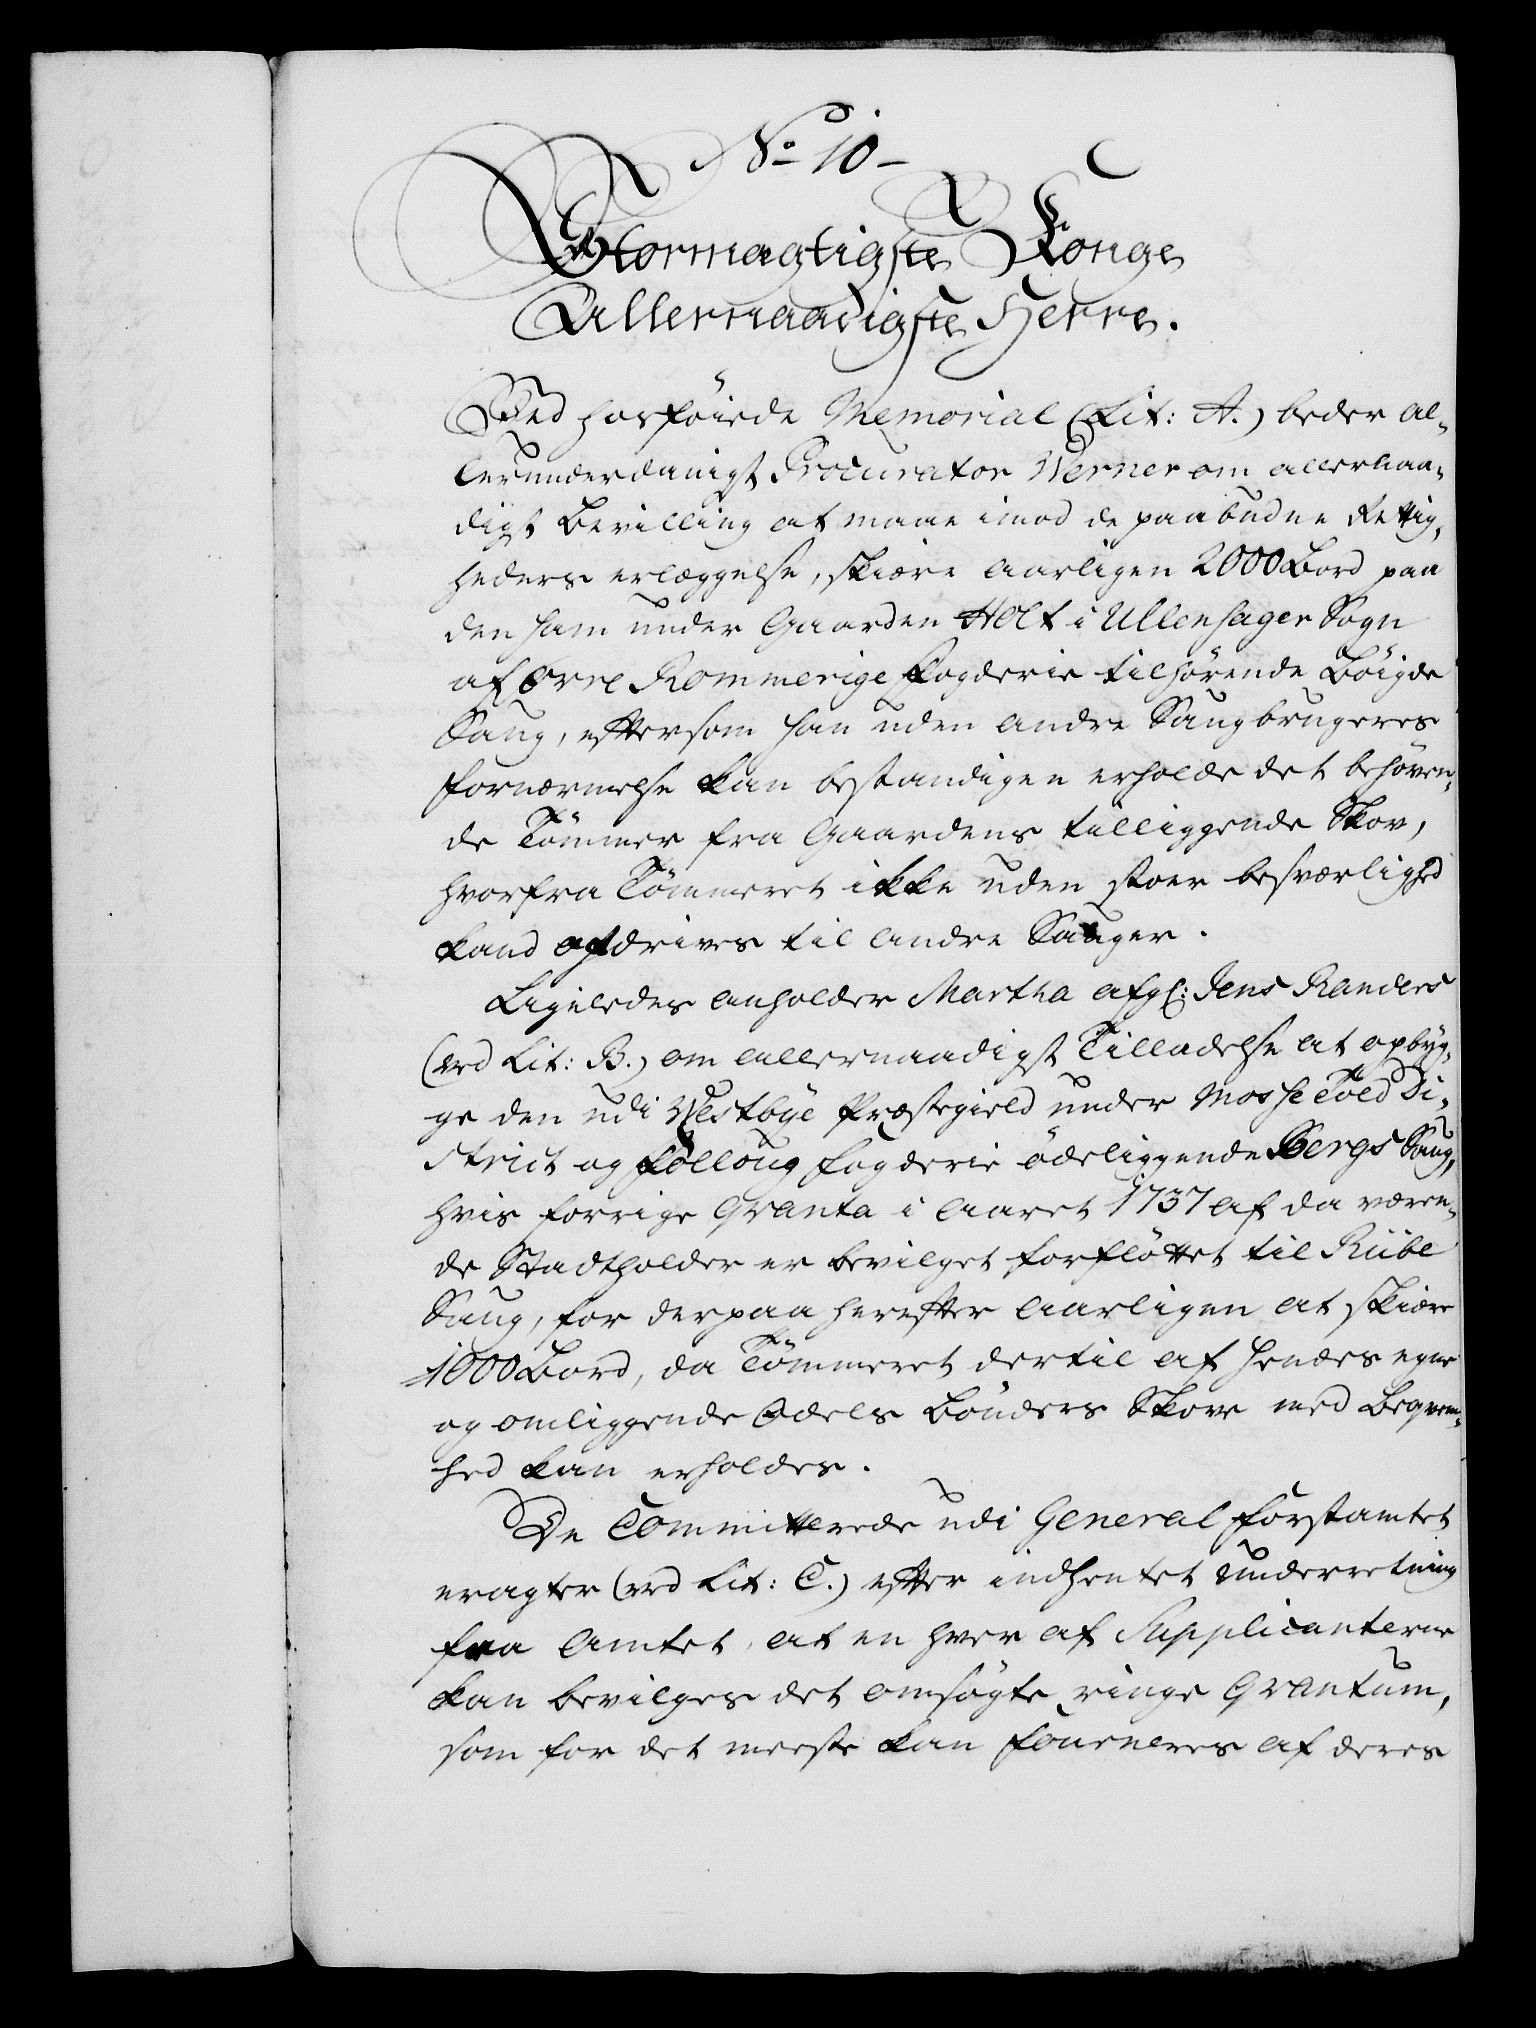 No 10
Stormægtigste Konge
Allernaadigste Herre.
Ved hosføiede Memorial (Lit: A.) beder al¬
lerunderdanigst Procurator Werner om allernaa¬
digst Bevilling at maae imod de paabudne Rettig¬
heders erlæggelse, skiære aarligen 2000 Bord paa
den ham under Gaarden Holt i Ullensager Sogn
af Øvre Rommerige Fogderie tilhørende Bøigde
Saug, eftersom han uden andre Saugbrugeres
fornærmelse kan bestandigen erholde det behøven¬
de Tømmer fra Gaardens tilliggende Skov,
hvorfra Tømmeret ikke uden stoer besværlighed
kand afdrives til andre Sauger.
Ligeledes anholder Martha afg: Jens Randers
(ved Lit: B.) om allernaadigst Tilladelse at opbyg¬
ge den udi Westbye Præstegield under Mosse Told Di¬
strict og Folloug Fogderie ödeliggende Bergs Saug,
hvis forrige Qvanta i Aaret 1737 af da væren¬
de Stadtholder er bevilget forfløttet til Riibe
Saug, for derpaa herefter aarligen at skiære
1000 Bord, da Tømmeret dertil af hendes egne
og omliggende Odels Bønders Skove med Beqvem¬
hed kan erholdes.
De Committerede udi General Forstamtet
eragter (ved Lit: C.) efter indhentet underretning
fra Amtet, at en hver af Supplicanterne
kan bevilges det omsøgte ringe Qvantum,
som for det meeste kan fourneres af deres